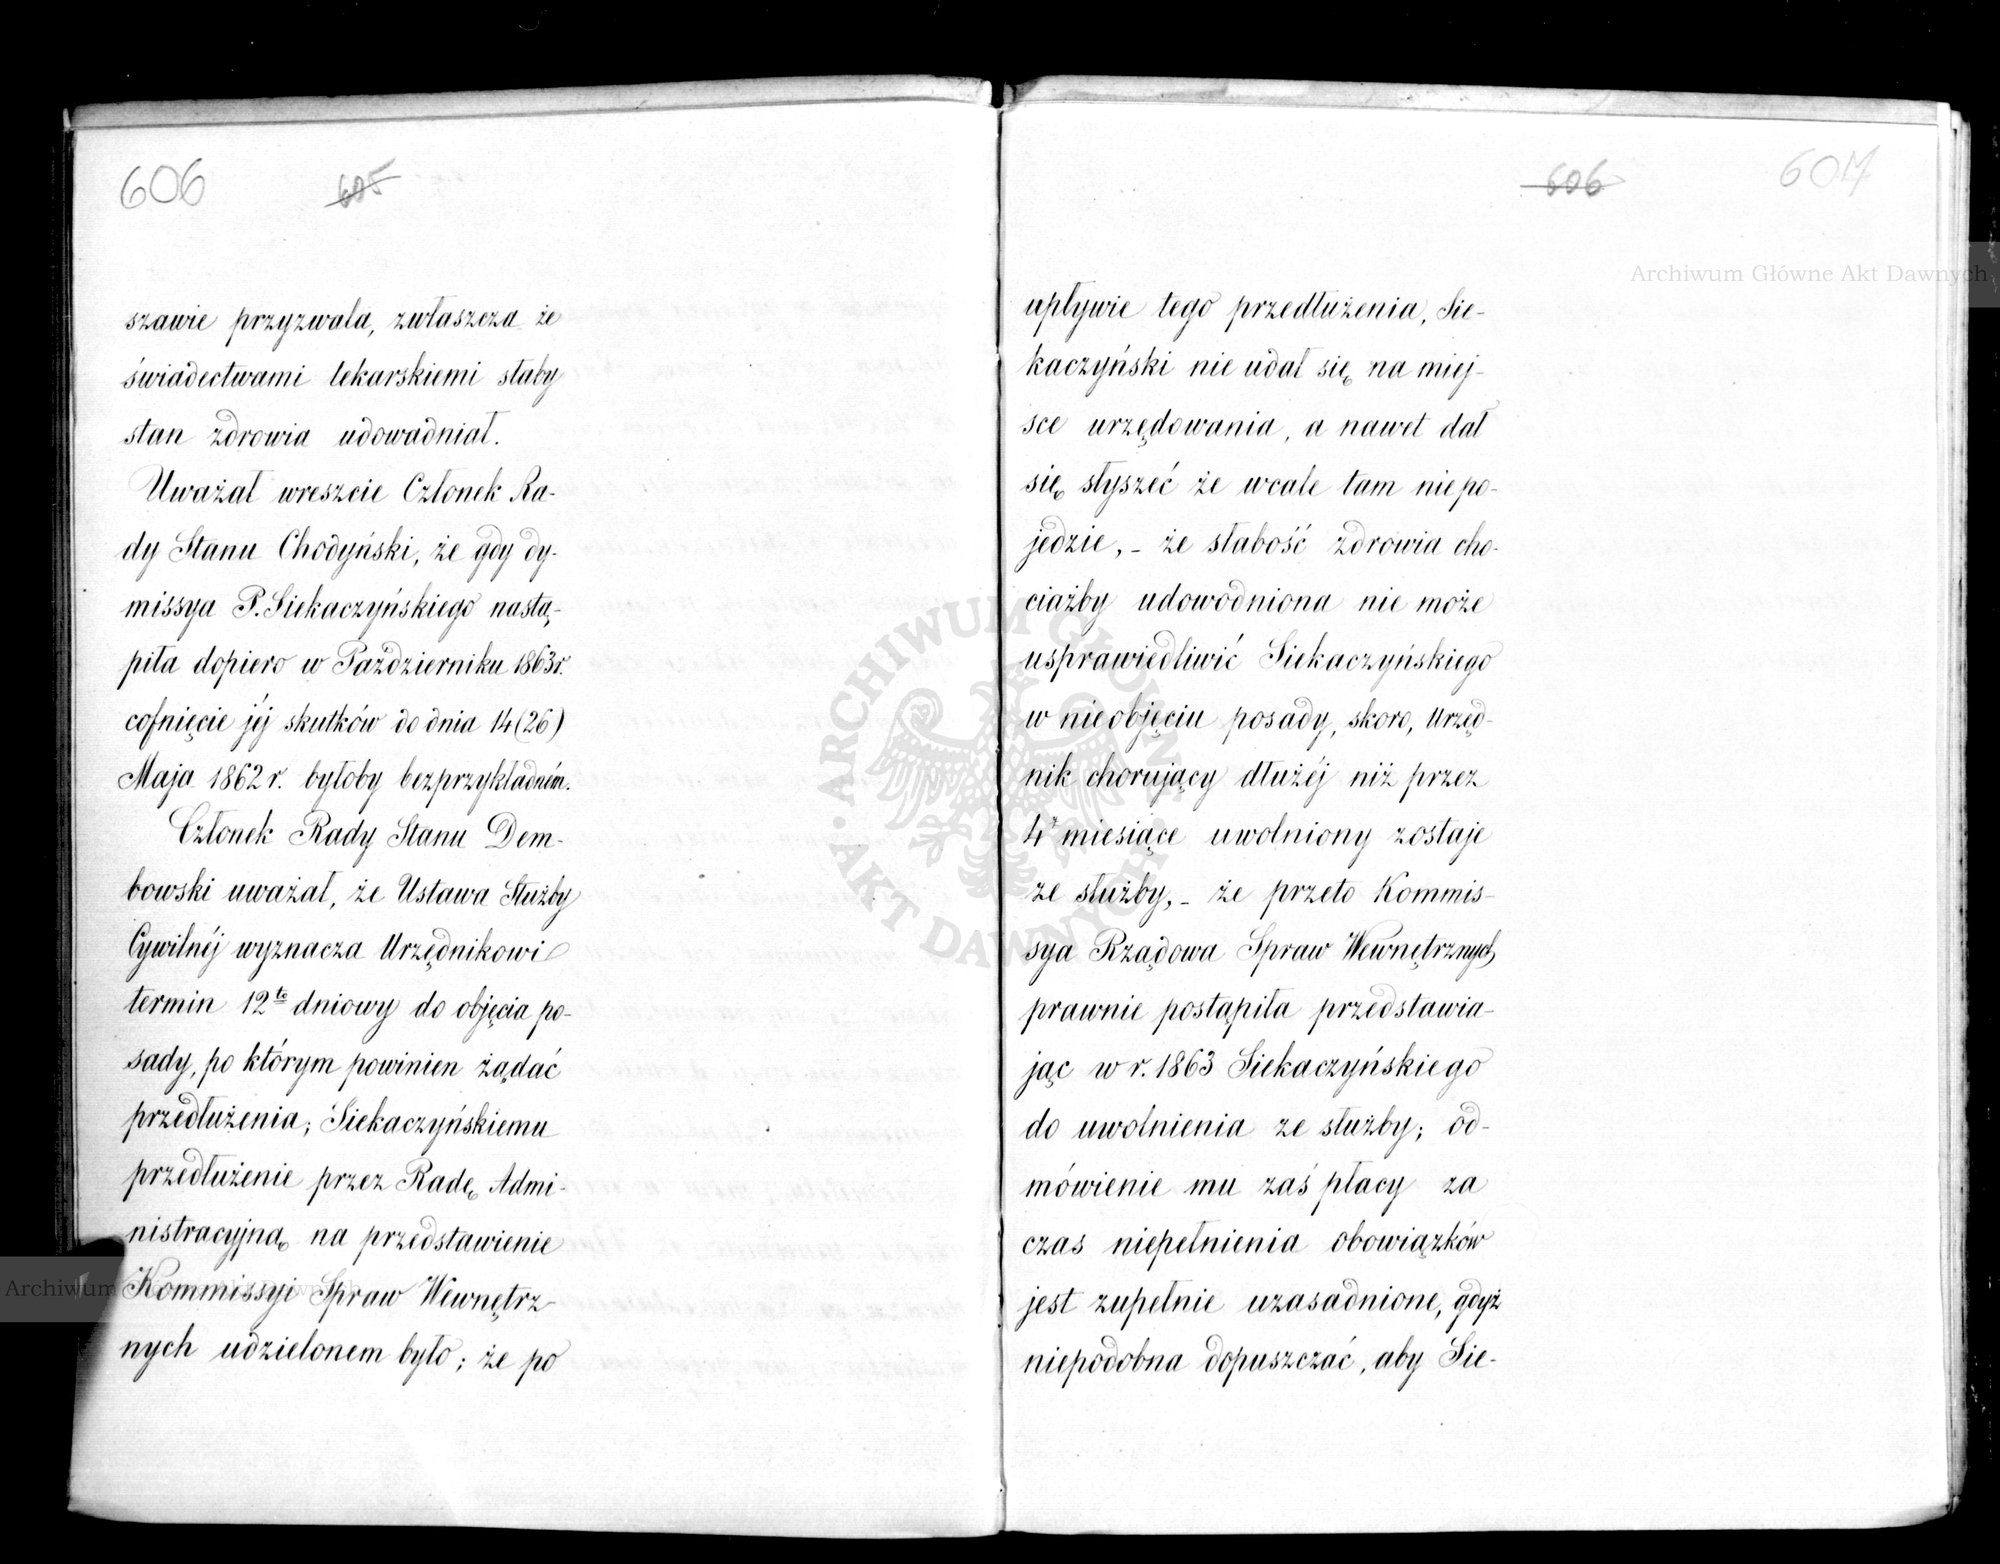 606 605
szawie przyzwala, zwłaszcza że
świadectwami lekarskiemi słaby
stan zdrowia udowadniał.
Uważał wreszcie Członek Ra-
dy Stanu Chodyński, że gdy dy-
missya P. Siekaczyńskiego nastą-
piła dopiero w Październiku 1863 r.
cofnięcie jéj skutków do dnia 14 (26)
Maja 1862 r. byłoby bezprzykładném.
Członek Rady Stanu Dem-
bowski uważał, że Ustawa Służby
Cywilnéj wyznacza Urzędnikowi
termin 12to dniowy do objęcia po-
sady, po którym powinien żądać
przedłużenia; Siekaczyńskiemu
przedłużenie przez Radę Admi-
nistracyjną na przedstawienie
Kommissyi Spraw Wewnętrz-
nych udzielonem było; że po
606 607
upływie tego przedłużenia, Sie-
kaczyński nie udał się na miej-
sce urzędowania, a nawet dał
się słyszeć że wcale tam niepo-
jedzie, - że słabość zdrowia cho-
ciażby udowodniona nie może
usprawiedliwić Siekaczyńskiego
w nieobjęciu posady, skoro, Urzęd-
nik chorujący dłużéj niż przez
4ry miesiące uwolniony zostaje
ze służby, - że przeto Kommis-
sya Rządowa Spraw Wewnętrznych
prawnie postąpiła przedstawia-
jąc w r. 1863 Siekaczyńskiego
do uwolnienia ze służby; od-
mówienie mu zaś płacy za
czas niepełnienia obowiązków
jest zupełnie uzasadnione, gdyż
niepodobna dopuszczać, aby Sie-
Archiwum Główne Akt Dawnych
ARCHIWUM GŁÓWNE • AKT DAWNYCH •